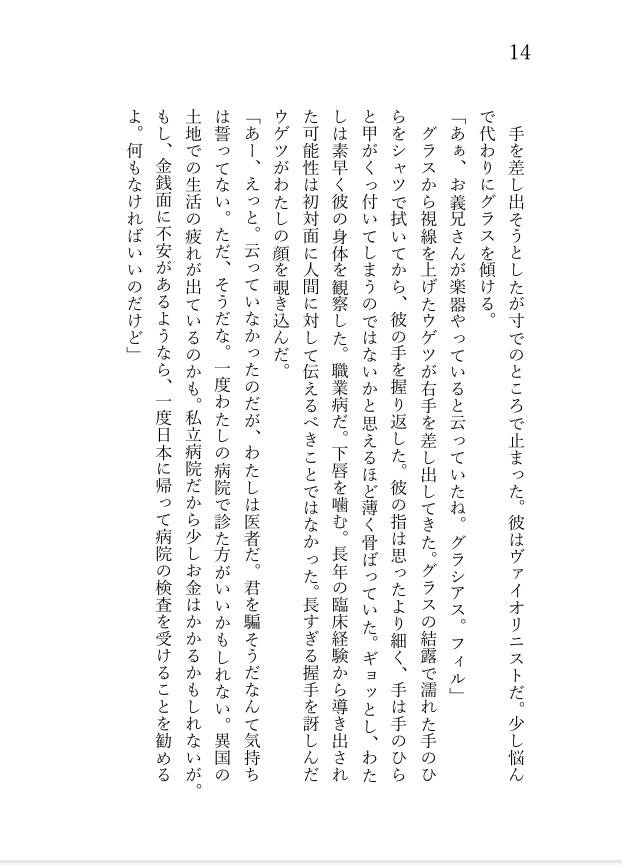 14
手を差し出そうとしたが寸でのところで止まった。彼はヴァイオリニストだ。少し悩ん
で代わりにグラスを傾ける。
「あぁ、お義兄さんが楽器やっていると云っていたね。グラシアス。フィル」
グラスから視線を上げたウゲツが右手を差し出してきた。グラスの結露で濡れた手のひ
らをシャツで拭いてから、彼の手を握り返した。彼の指は思ったより細く、手は手のひら
と甲がくっ付いてしまうのではないかと思えるほど薄く骨ばっていた。ギョッとし、わた
しは素早く彼の身体を観察した。職業病だ。下唇を噛む。長年の臨床経験から導き出され
た可能性は初対面に人間に対して伝えるべきことではなかった。長すぎる握手を訝しんだ
ウゲツがわたしの顔を覗き込んだ。
「あー、えっと。云っていなかったのだが、わたしは医者だ。君を騙そうだなんて気持ち
は誓ってない。ただ、そうだな。一度わたしの病院で診た方がいいかもしれない。異国の
土地での生活の疲れが出ているのかも。私立病院だから少しお金はかかるかもしれないが。
もし、金銭面に不安があるようなら、一度日本に帰って病院の検査を受けることを勧める
よ。何もなければいいのだけど」